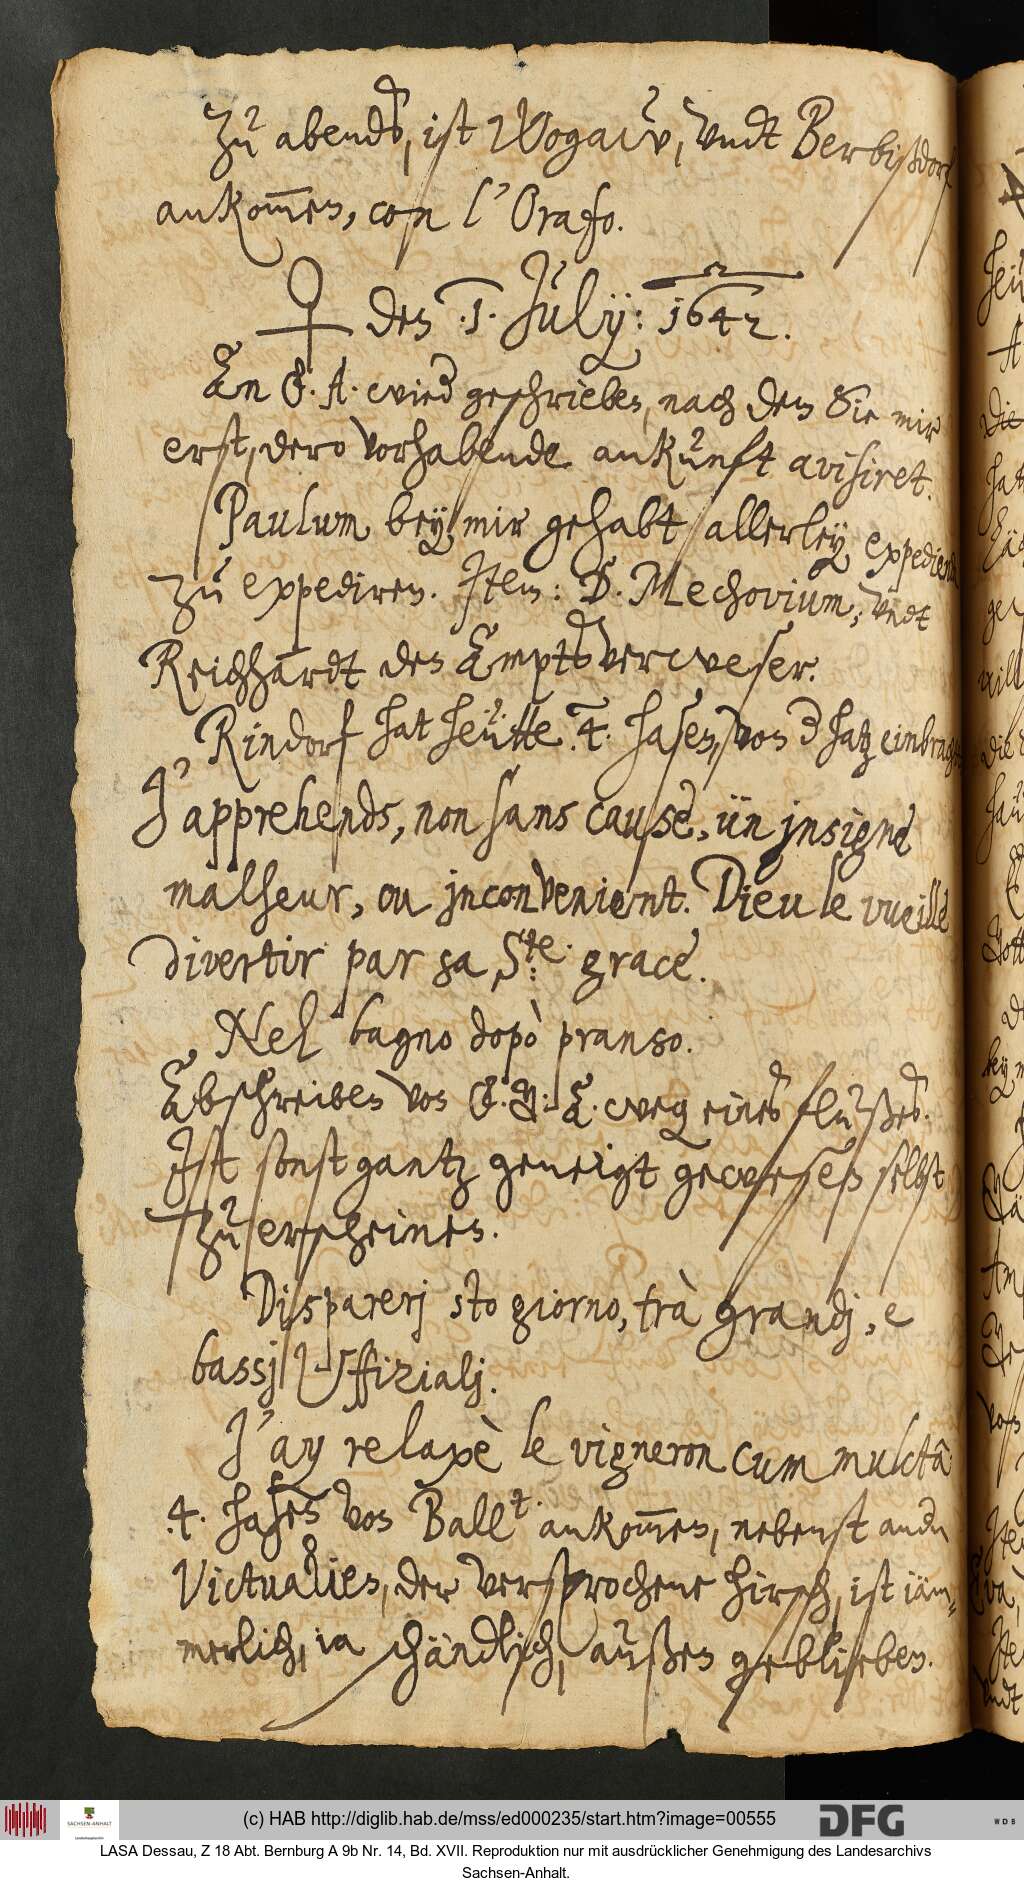 Zu abends, ist Wogaw, vndt Berbißdorf
ankom̅en, con l'Orafo.
♀ den .1. July: 1642.
An F. A. wied geschrieben, nach dem Sie mir
erst, dero vorhabende ankunft avisiret.
Paulum bey mir gehabt allerley expedienda
zu expediren. Item: D. Mechovium, vndt
Reichhardt den Amptsverweser.
Rindorf hat heütte .4. hasen, von der hatz einbracht
J'apprehends, non sans cause, ün jnsigne
malheur, ou jnconvenient. Dieu le vueille
divertir par sa Ste: grace.
Nel bagno dopò pranso.
Abschreiben von F. A: weg eines flußes.
Ist sonst gantz geneigt gewesen selbst
zu erscheinen.
Disparerj sto giorno, trà grandj, e
bassj Uffizialj.
J'ay relaxè le vigneron cum mulctâ
.4. hasen von Ballt. ankom̅en, nebenst andn
Victualien, der versprochene hirsch, ist iäm=
merlich, ia schändlich, außen geblieben.
(c) HAB http://diglib.hab.de/mss/ed000235/start.htm?image=00555
SACHSEN-ANHALT
DFG
WDB
LASA Dessau, Z 18 Abt. Bernburg A 9b Nr. 14, Bd. XVII. Reproduktion nur mit ausdrücklicher Genehmigung des Landesarchivs
Sachsen-Anhalt.